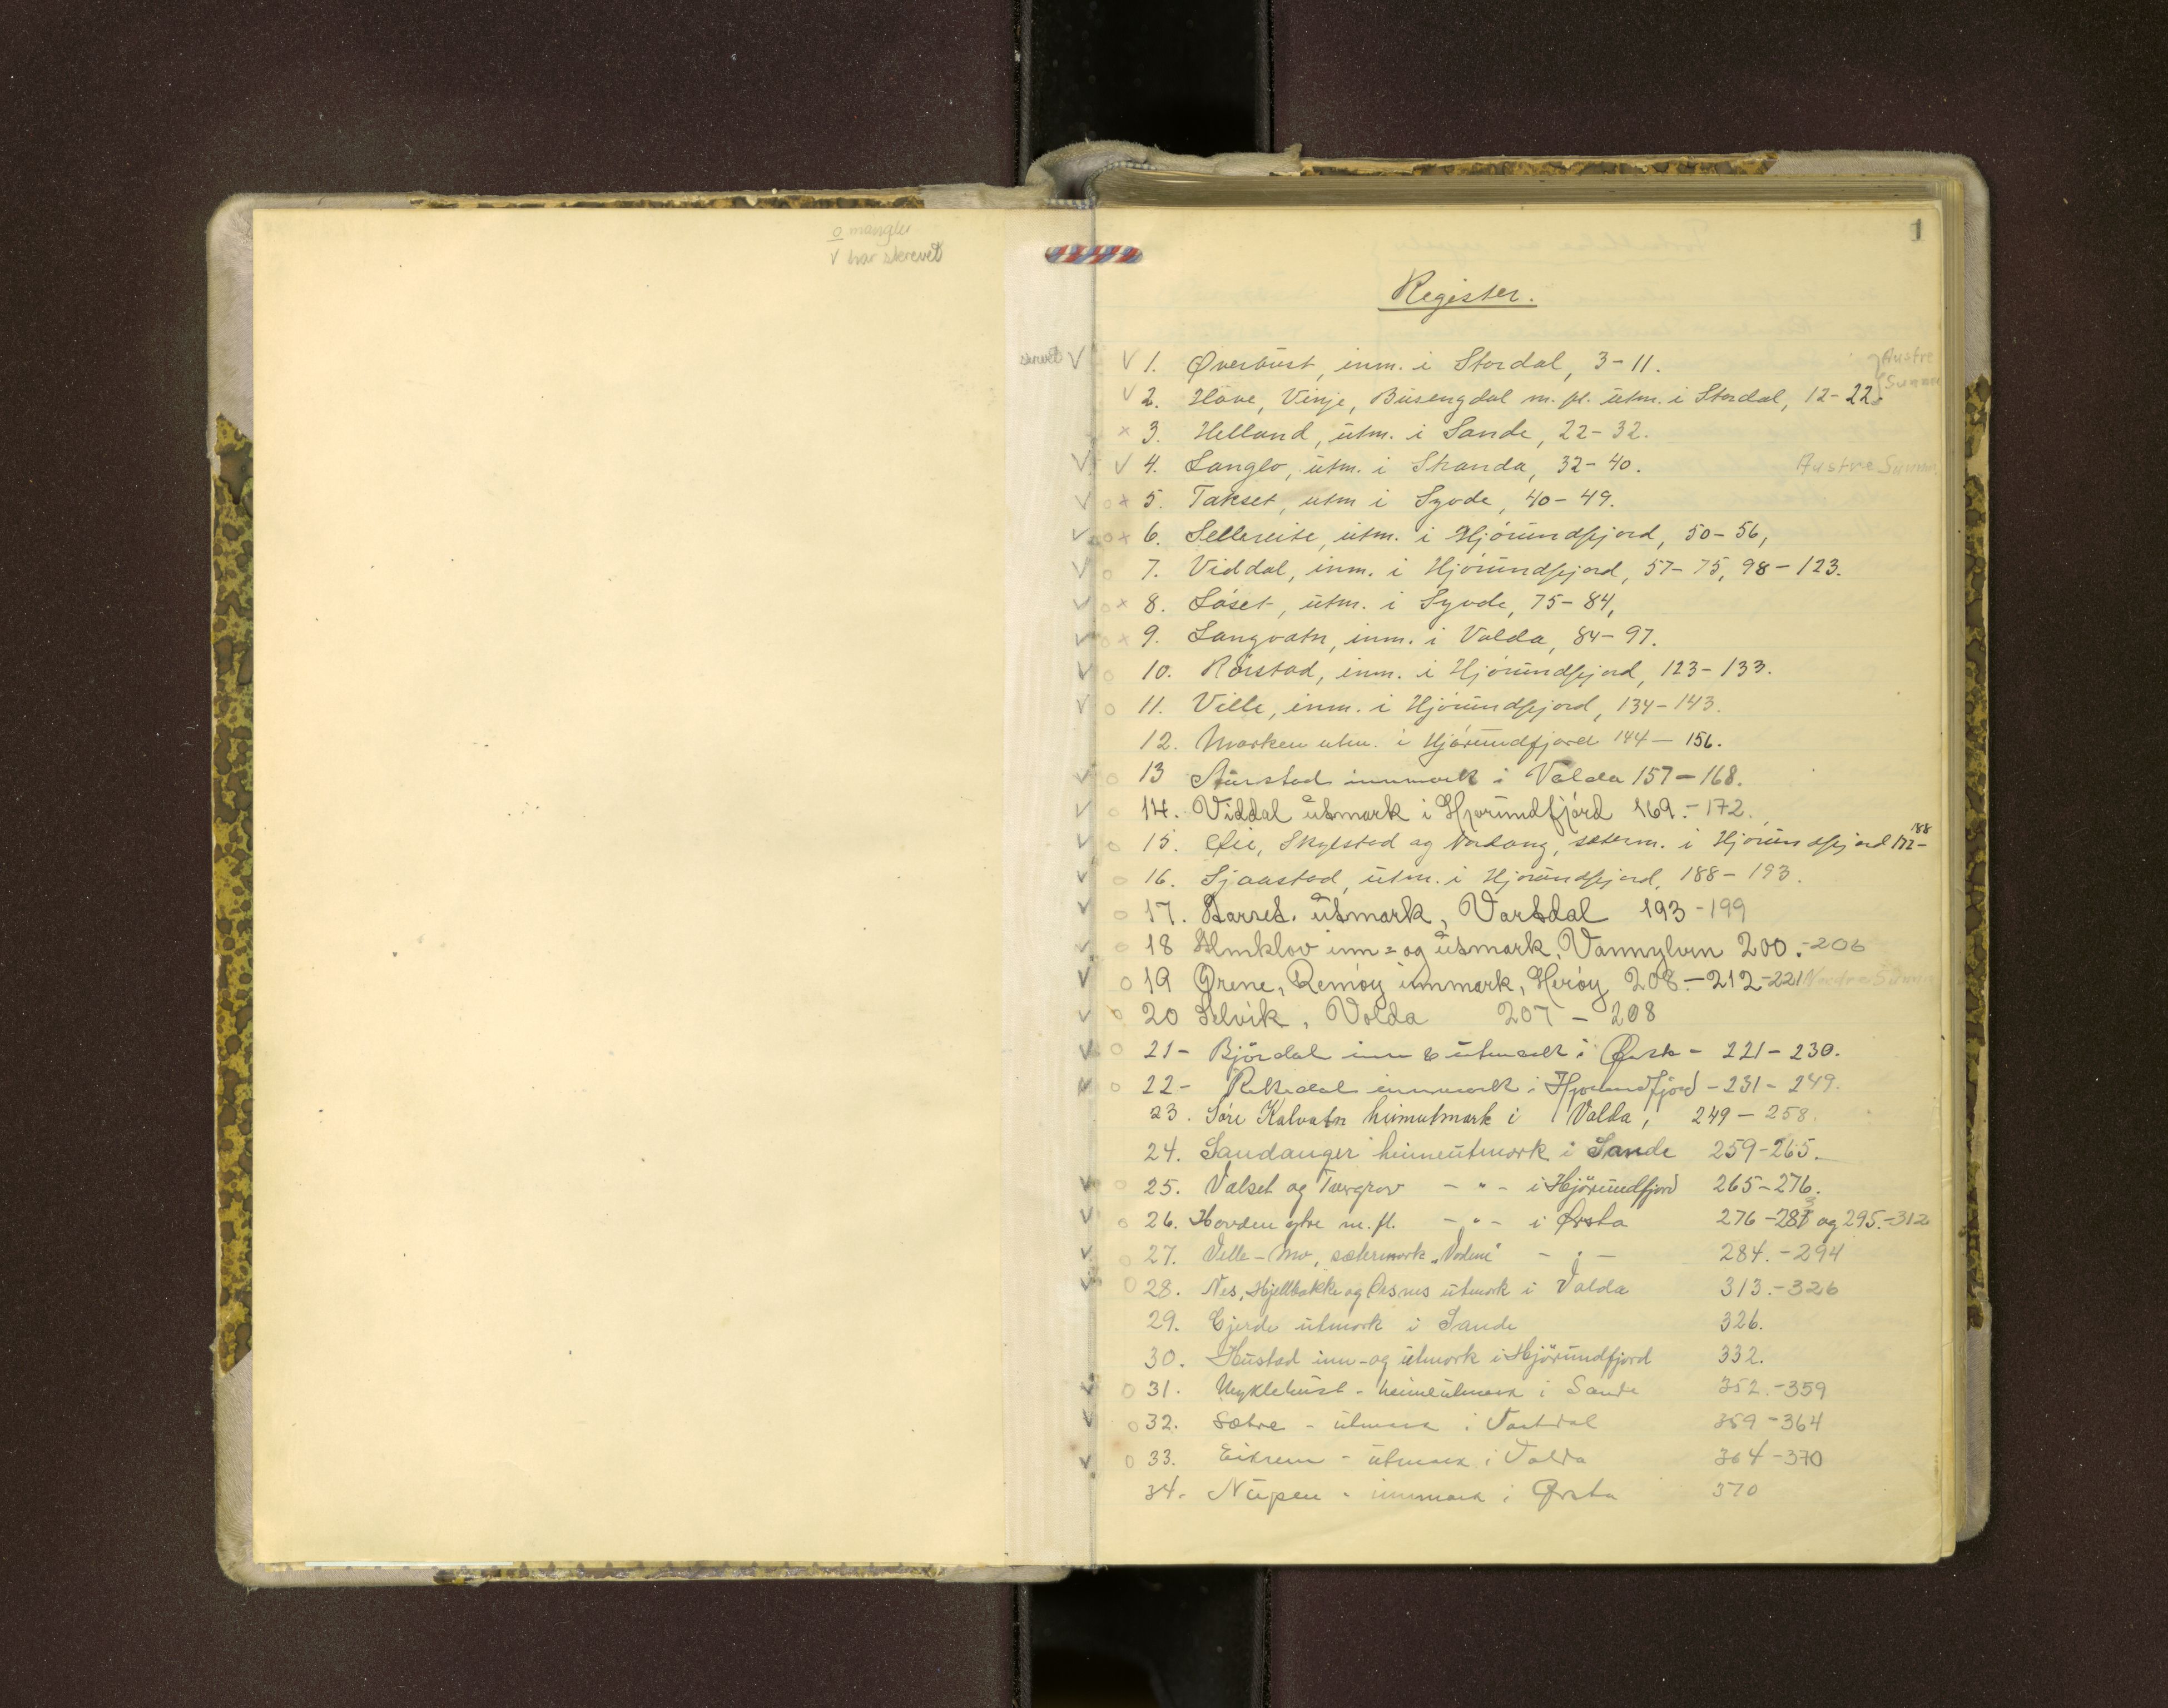 o mangler
v har skrevet
1
Register.
V V 1. Øveraust, inm. i Stordal, 3-11. Austre
V 2. Hove, Vinje, Busengdal m. fl. utm. i Stordal, 12-22. Sunnm
x 3. Helland, utm. i Sande, 22-32.
V V 4. Langlo, utm. i Stranda, 32-40. Austre Sunnm
V o x 5. Takset, utm i Syvde, 40-49.
V o x 6. Sellereite, utm. i Hjörundfjord, 50-56,
V o 7. Viddal, inm. i Hjörundfjord, 57-75, 98-123.
V o x 8. Löset, utm. i Syvde, 75-84,
V o x 9. Langvatn, inm. i Volda, 84-97.
V o 10. Rörstad, inm. i Hjörundfjord, 123-133.
V o 11. Ville, inm. i Hjörundfjord, 134-143.
12. Morken utm. i Hjörundfjord 144-156.
V o 13 Aurstad innmark i Volda 157-168.
V o 14. Viddal utmark i Hjørundfjörd 169.-172.
V o 15. Øie, Skylstad og Nordang, seterm. i Hjörundfjord 172-188
V o 16. Sjaastad, utm. i Hjörundfjord, 188-193.
V o 17. Barset. utmark, Vartdal 193-199
V o 18 Almklov inn= og utmark, Vannylven 200.-206
V o 19 Ørene, Remöy innmark, Heröy 208.-212-221 Nordre Sunnm
V o 20 Selvik, Volda 207-208
V o 21- Björdal inn & utmark i Ørsta - 221-230.
V o 22- Rekedal innmark i Hjørundfjord - 231-249.
23. Söre Kalvatn heimutmark i Volda, 249-258.
24. Sandanger heimeutmork i Sande 259-265.
V o 25. Valset og Tvergrov - " - i Hjörundfjord 265-276.
V o 26. Hovden ytre m. fl. - " - i Ørsta 276-283 og 295.-312
V o 27. Velle-Mo, sætermork - " - 284.-294
V o 28. Nes, Hjellbakke og Aasnes utmork i Volda 313.-326
29. Gjerde utmork i Sande 326.
30. Hustad inn-og utmork i Hjörundfjord 332.
V o 31. Myklebust - heimeutmark i Sande 352.-359
V o 32. Sætre - utmark i Vartdal 359-364
V o 33. Eikrem - utmark i Volda 364-370
34. Nupen - innmark i Ørsta 370